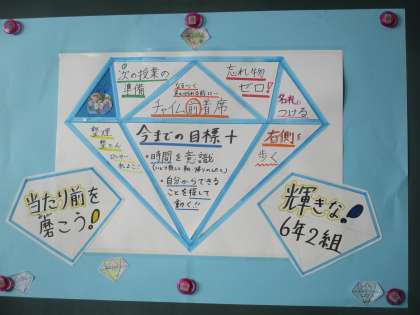 次の授業の
準備
忘れ物
ゼロ!
チャイム前着席
名札
つける
整理
整とん
今までの目標+
・時間を意識
・自分からできる
ことを探して
動く!!
右側を
歩く
当たり前を
磨こう!
輝きな!
6年2組